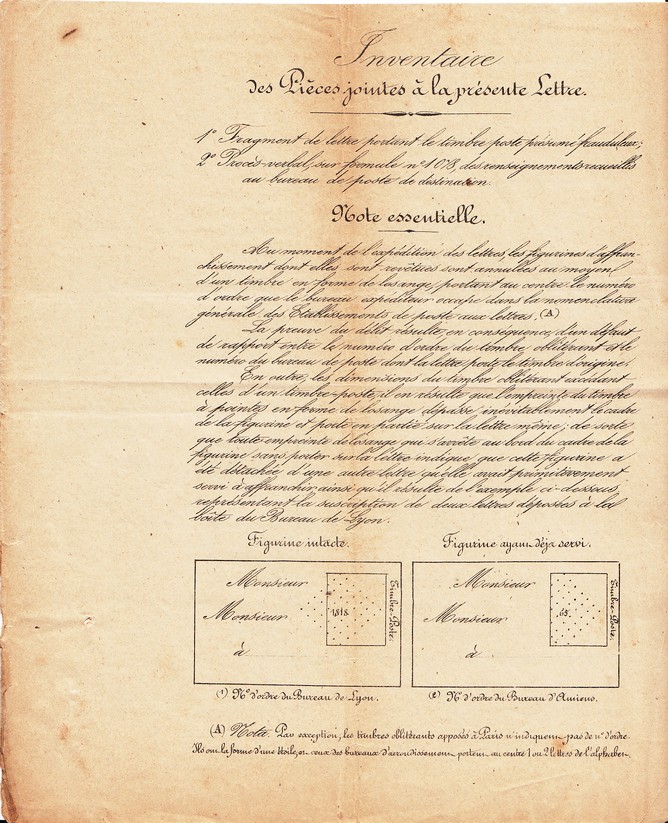 Inventaire
des Pièces jointes à la présente Lettre.
1° Fragment de lettre portant le timbre poste présumé frauduleux;
2° Procès-verbal, sur formule n° 1078, des renseignements recueillis
au bureau de poste de destination.
Note essentielle.
Au moment de l'expédition des lettres, les figurines d'affran-
chissement dont elles sont revêtues sont annulées au moyen
d'un timbre en forme de losange, portant au centre le numéro
d'ordre que le bureau expéditeur occupe dans la nomenclature
générale des Etablissements de poste aux lettres. (A)
La preuve du délit résulte, en conséquence, d'un défaut
de rapport entre le numéro d'ordre du timbre oblitérant et le
numéro du bureau de poste dont la lettre porte le timbre d'origine;
En outre, les dimensions du timbre oblitérant excédant
celles d'un timbre-poste, il en résulte que l'empreinte du timbre
à pointes en forme de losange dépasse inévitablement le cadre
de la figurine et porte en partie sur la lettre même; de sorte
que toute empreinte de losange qui s'arrête au bord du cadre de la
figurine sans porter sur la lettre indique que cette figurine a
été détachée d'une autre lettre qu'elle avait primitivement
servi à affranchir ainsi qu'il résulte de l'exemple ci-dessous,
représentant la suscription de deux lettres déposées à la
boîte du Bureau de Lyon.
Figurine intacte.
Monsieur
Monsieur
à
1818
Timbre-Poste.
(1) N° d'ordre du Bureau de Lyon.
Figurine ayant déjà servi.
Monsieur
Monsieur
à
65
Timbre-Poste
(2) N° d'ordre du Bureau d'Amiens.
(A) Nota. Par exception, les timbres oblitérants apposés à Paris n'indiquent pas de n° d'ordre.
Ils ont la forme d'une étoile, et ceux des bureaux d'arrondissement portent au centre 1 ou 2 lettres de l'alphabet.